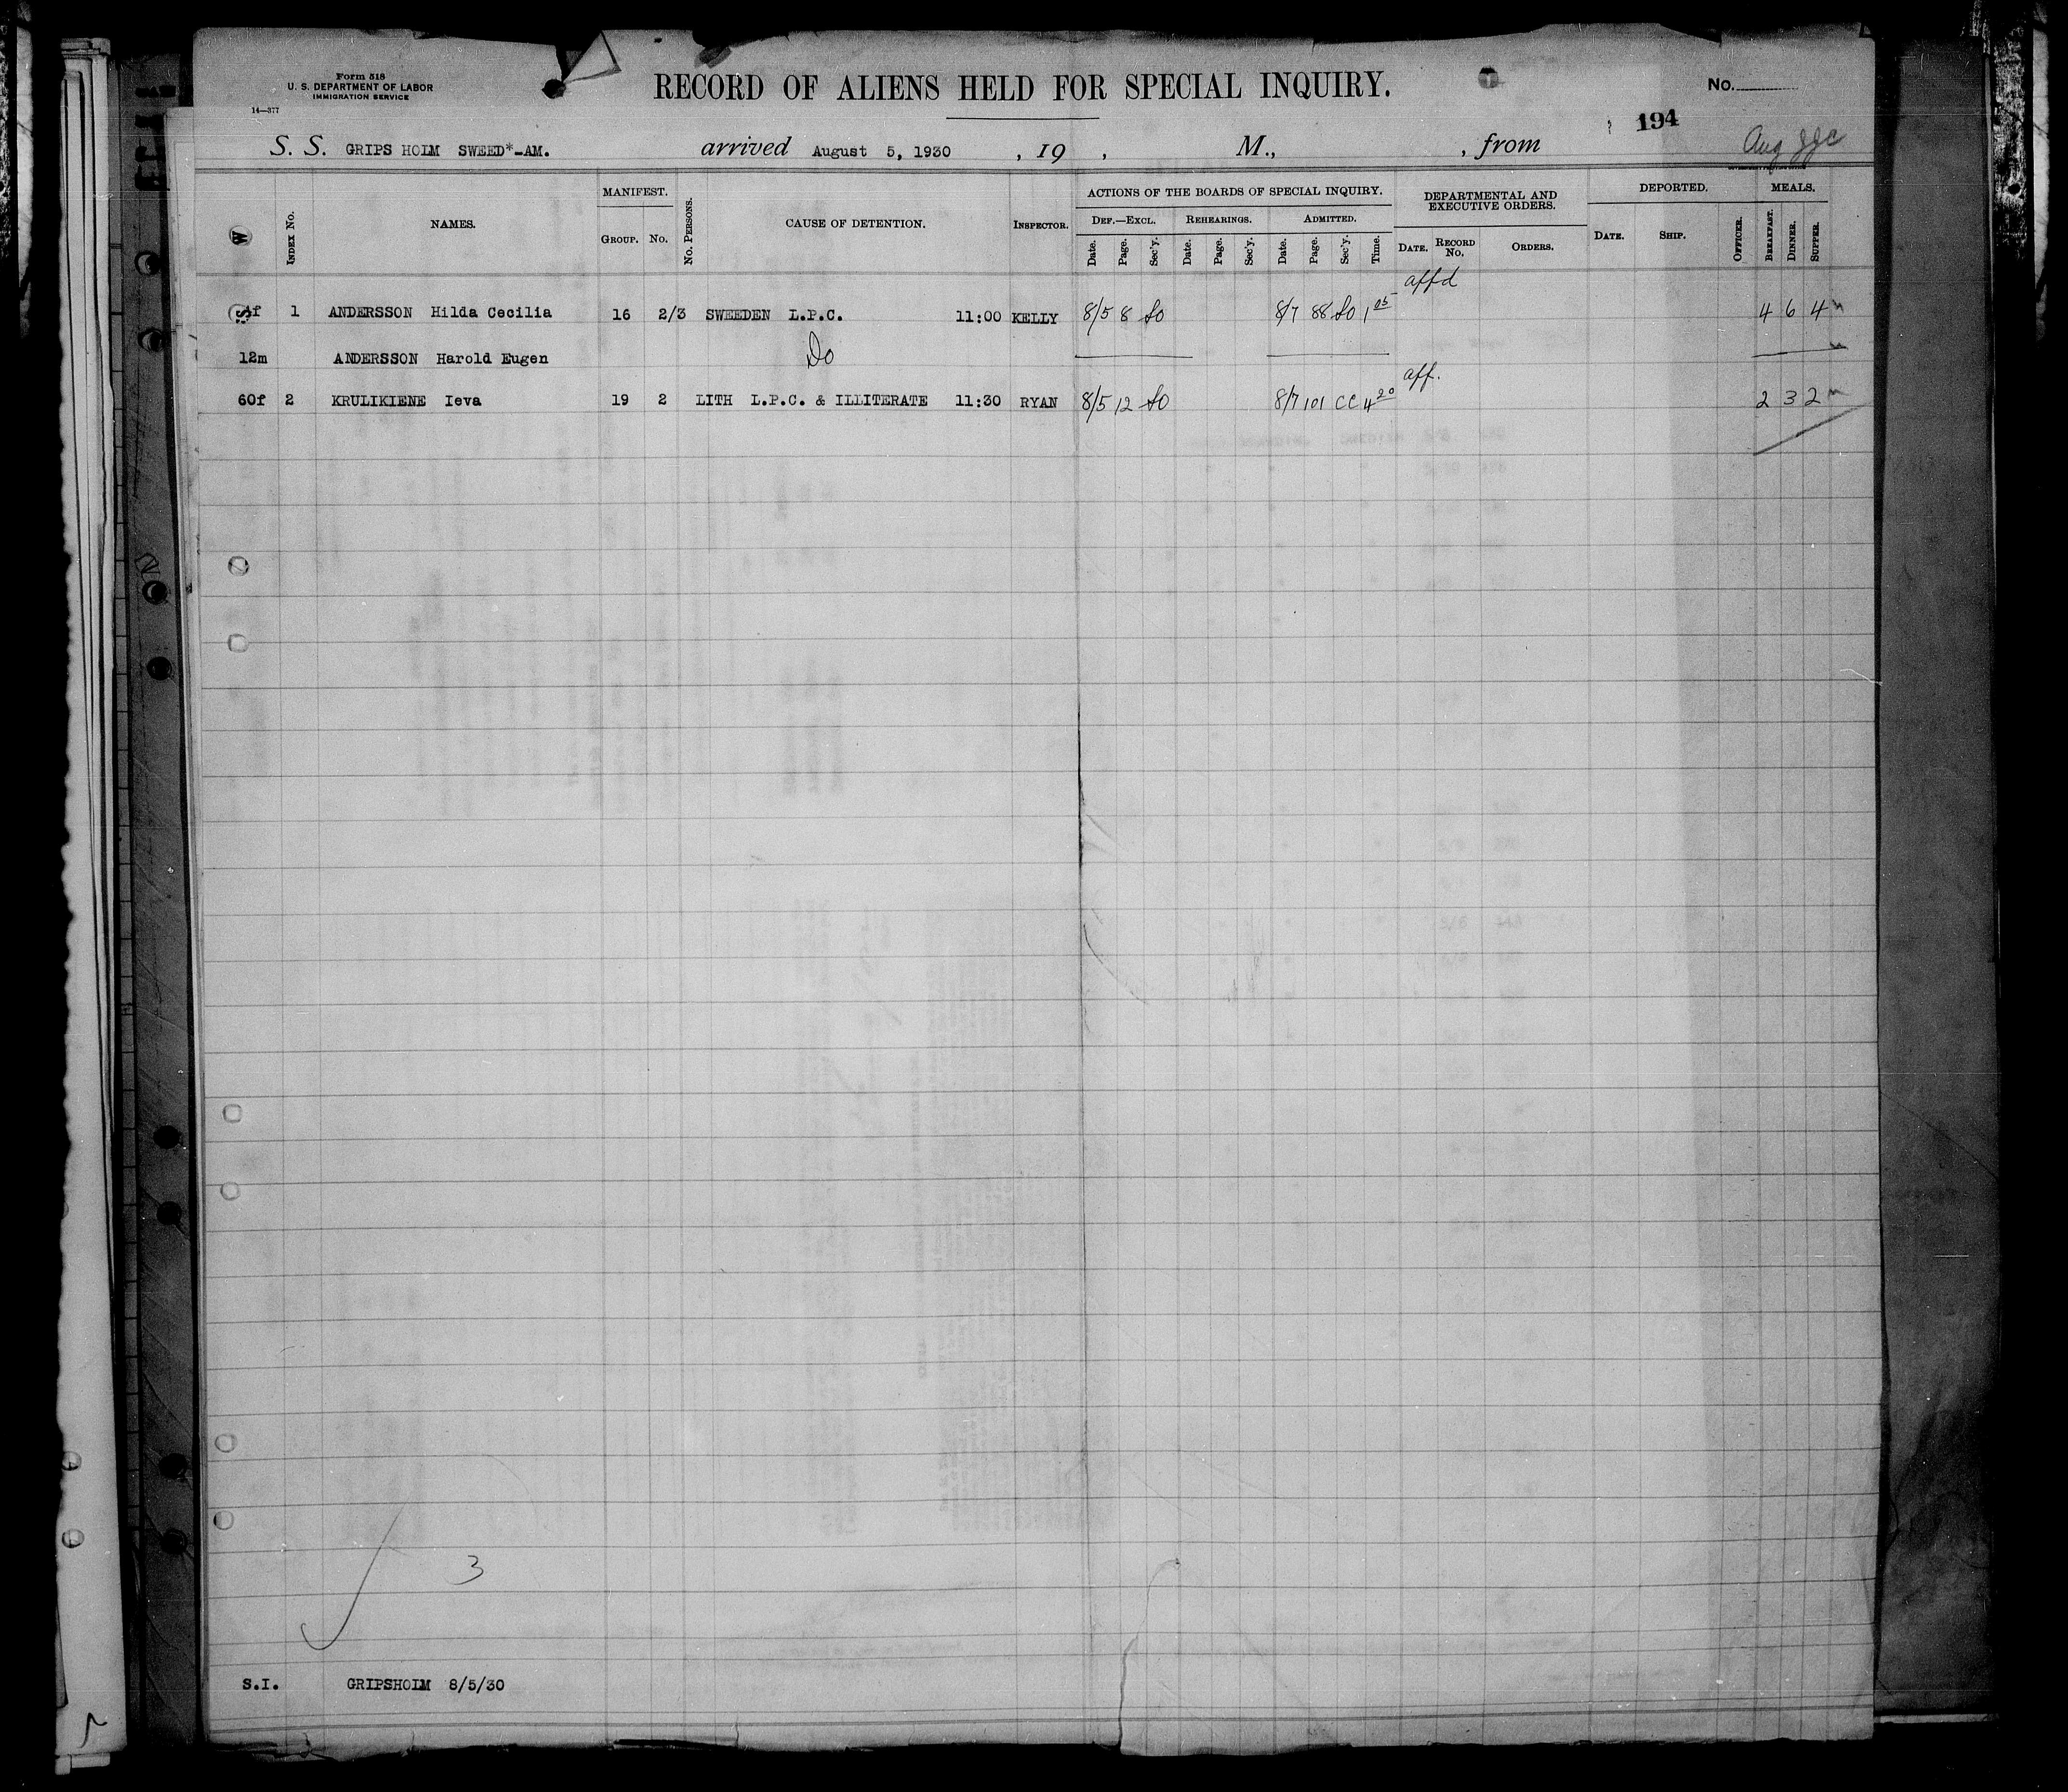 Form 518
U. S. DEPARTMENT OF LABOR
IMMIGRATION SERVICE
14—377
RECORD OF ALIENS HELD FOR SPECIAL INQUIRY.
No.
194
S. S. GRIPS HOLM SWEED*-AM. arrived August 5, 1930 , 19 , M., , from Aug
INDEX NO. NAMES. MANIFEST. GROUP. NO. NO. PERSONS. CAUSE OF DETENTION. INSPECTOR. ACTIONS OF THE BOARDS OF SPECIAL INQUIRY. DEF.—EXCL. REHEARINGS. ADMITTED. DEPARTMENTAL AND EXECUTIVE ORDERS. DEPORTED. MEALS.
Date. Page. Sec'y. Date. Page. Sec'y. Date. Page. Sec'y. Time. DATE. RECORD NO. ORDERS. DATE. SHIP. OFFICER. BREAKFAST. DINNER. SUPPER.
affd
f 1 ANDERSSON Hilda Cecilia 16 2/3 SWEEDEN L.P.C. 11:00 KELLY 8/5 8 SO 8/7 88 SO 1 05 4 6 4
12m ANDERSSON Harold Eugen Do
aff.
60f 2 KRULIKIENE Ieva 19 2 LITH L.P.C. & ILLITERATE 11:30 RYAN 8/5 12 SO 8/7 101 CC 4 20 2 3 2
3
S.I. GRIPSHOLM 8/5/30